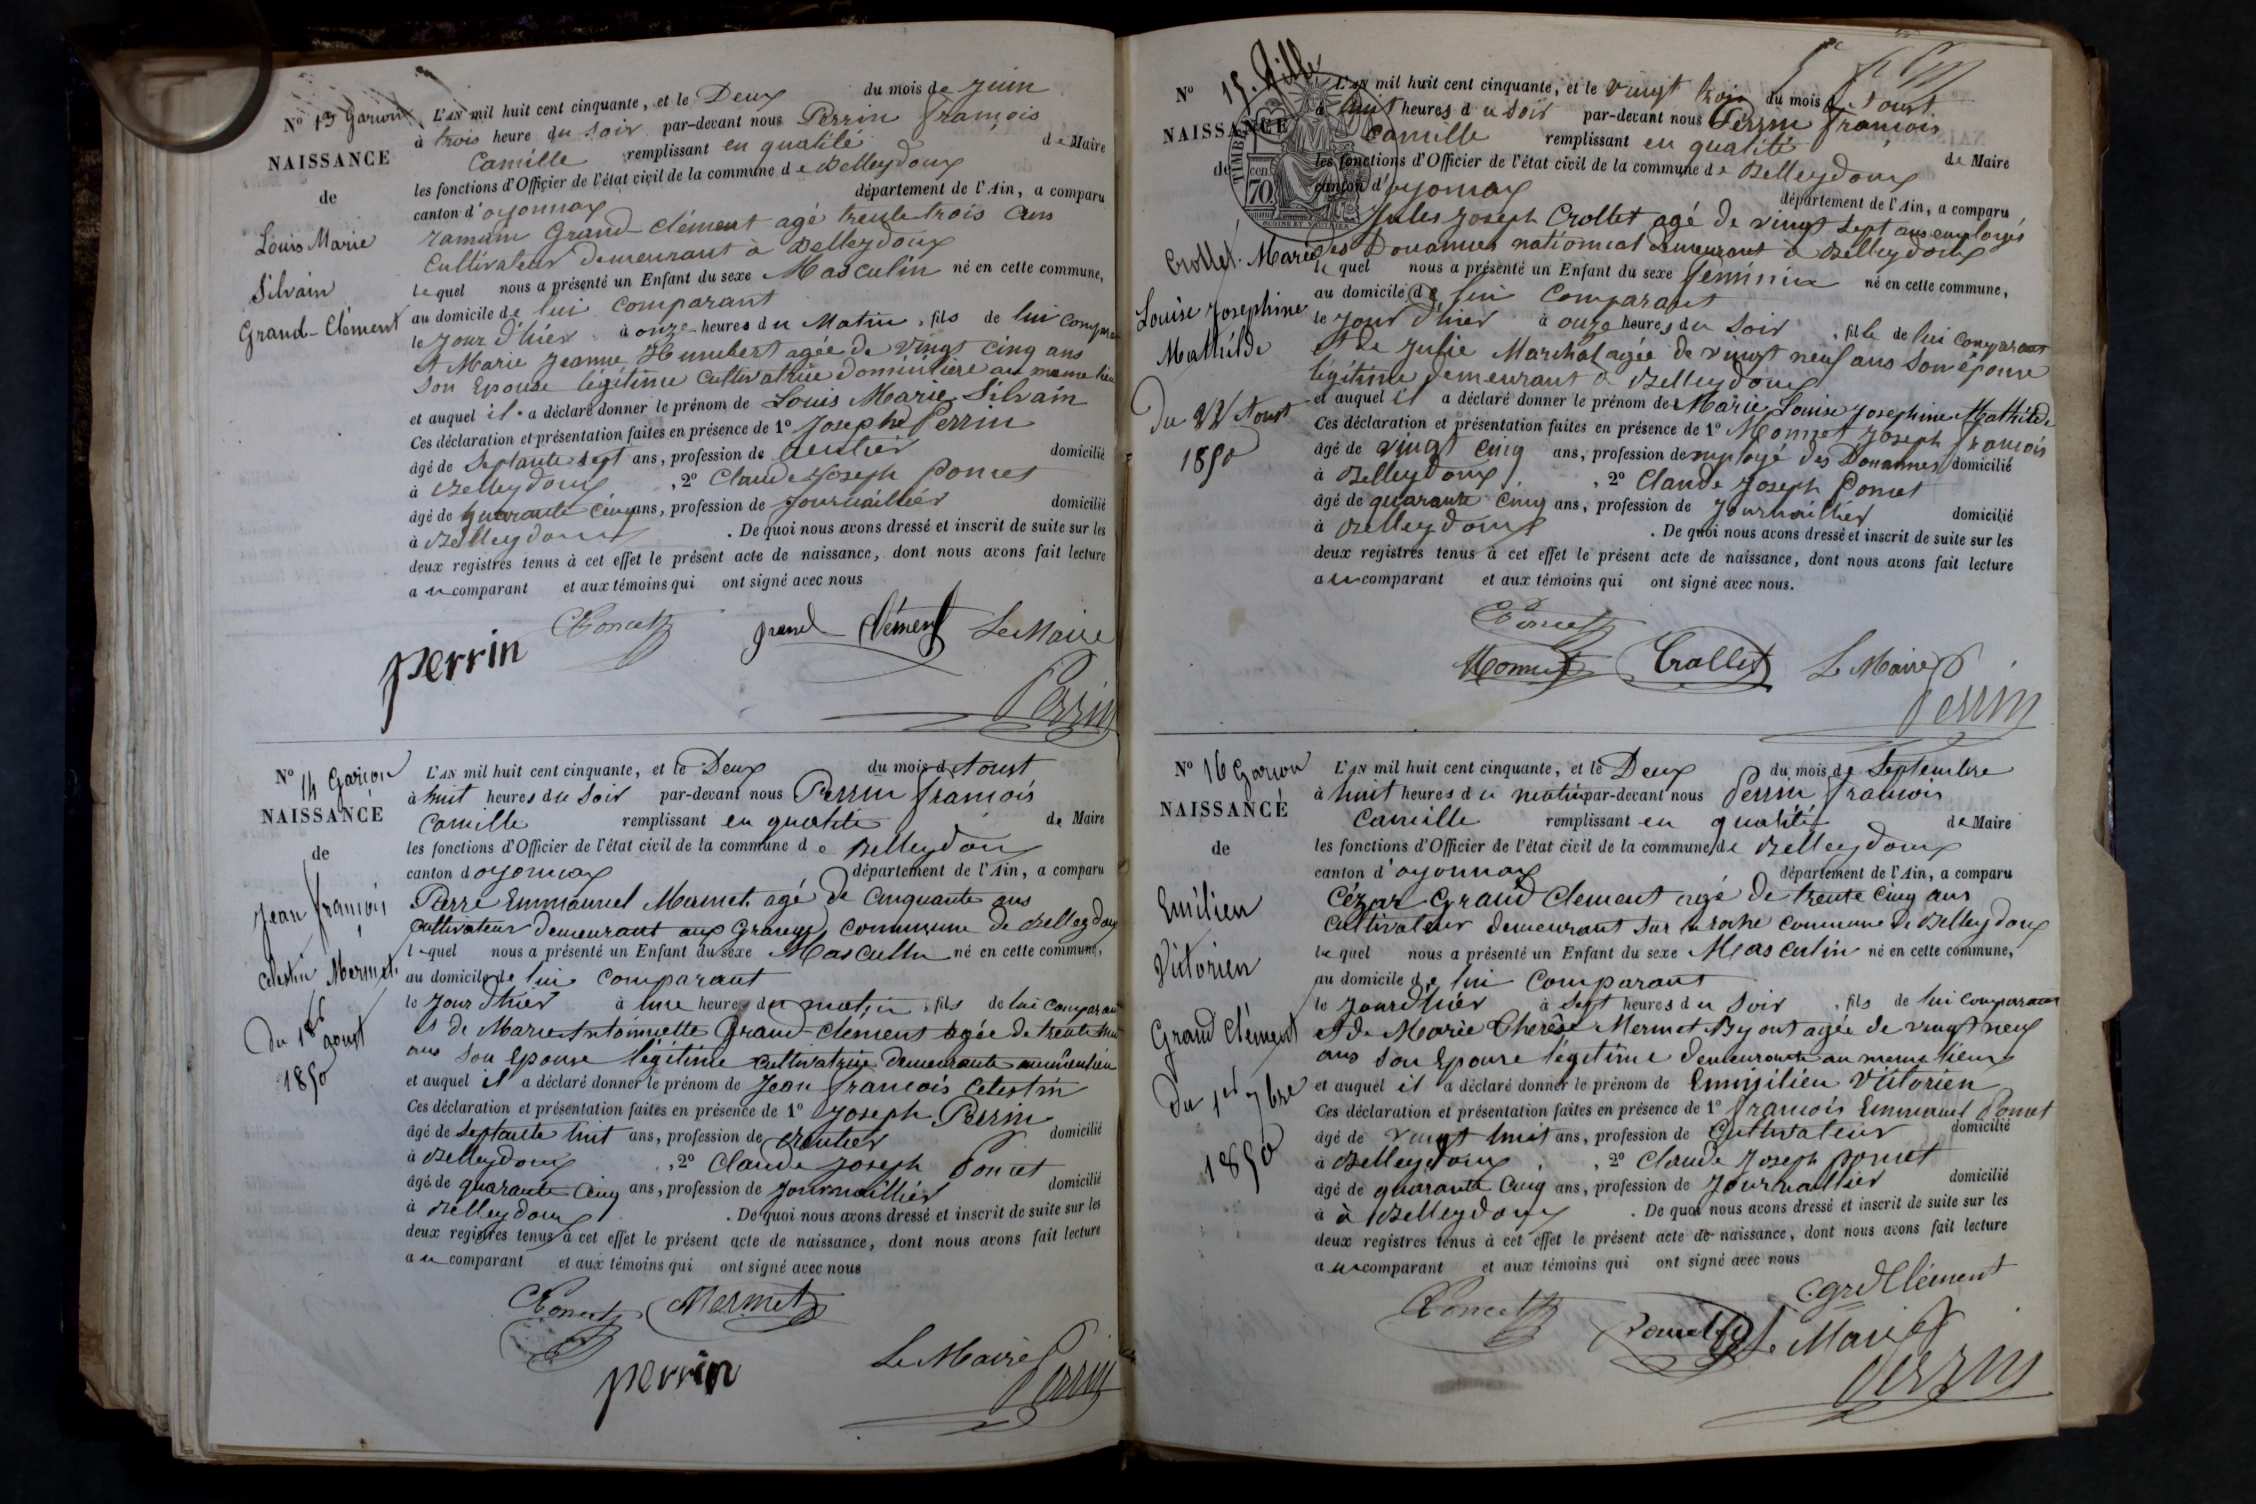 No 13 Garçon
NAISSANCE
de
Louis Marie
Silvain
Grand-Clément
L'AN mil huit cent cinquante, et le Deux du mois de Juin
à trois heure du soir par-devant nous Perrin françois
Camille remplissant en qualité de Maire
les fonctions d'Officier de l'état civil de la commune de Belleydoux
canton d'oyonnax département de l'Ain, a comparu
romain Grand-Clément agé trente trois ans
Cultivateur demeurant à Belleydoux
lequel nous a présenté un Enfant du sexe Masculin né en cette commune,
au domicile de lui comparant
le jour d'hier à onze heures du Matin, fils de lui
et Marie Jeanne Humbert agée de vingt cinq ans
Son Epouse légitime cultivatrice au meme lieu
et auquel il a déclaré donner le prénom de Louis Marie Silvain
Ces déclaration et présentation faites en présence de 1o Joseph Perrin
âgé de Septante sept ans, profession de rentier domicilié
à Belleydoux, 2o Claude Joseph Poncet
âgé de quarante cinq ans, profession de Journaillier domicilié
à Belleydoux. De quoi nous avons dressé et inscrit de suite sur les
deux registres tenus à cet effet le présent acte de naissance, dont nous avons fait lecture
au comparant et aux témoins qui ont signé avec nous
Poncet grand Clément Le Maire
perrin
Perrin
No 14 Garçon
NAISSANCE
de
Jean françois
celestin Mermet
du 1er aoust
1850
L'AN mil huit cent cinquante, et le Deux du mois d'Aoust
à huit heures du Soir par-devant nous Perrin françois
Camille remplissant en qualité de Maire
les fonctions d'Officier de l'état civil de la commune de Belleydoux
canton d'oyonnax département de l'Ain, a comparu
Pierre Emmanuel Mermet agé de Cinquante ans
Cultivateur demeurant aux commune de Belleydoux
lequel nous a présenté un Enfant du sexe Masculin né en cette commune,
au domicile de lui comparant
le jour d'hier à une heures du matin, fils de lui comparant
et de Marie Antoinette Grand-Clément agée de trente
ans Son Epouse légitime cultivatrice demeurante
et auquel il a déclaré donner le prénom de Jean françois Celestin
Ces déclaration et présentation faites en présence de 1o Joseph Perrin
âgé de Septante huit ans, profession de rentier domicilié
à Belleydoux, 2o Claude Joseph Poncet
âgé de quarante Cinq ans, profession de Journaillier domicilié
à Belleydoux. De quoi nous avons dressé et inscrit de suite sur les
deux registres tenus à cet effet le présent acte de naissance, dont nous avons fait lecture
au comparant et aux témoins qui ont signé avec nous
Poncet Mermet
perrin Le Maire
Perrin
No 15. fille
NAISSANCE
de
Crollet. Marie
Louise Josephine
Mathilde
du 22 Aoust
1850
TIMBRE
70 cen
L'AN mil huit cent cinquante, et le vingt trois du mois d'Aoust
à huit heures du soir par-devant nous Perrin françois
Camille remplissant en qualité de Maire
les fonctions d'Officier de l'état civil de la commune de Belleydoux
canton d'oyonnax département de l'Ain, a comparu
Jules Joseph Crollet agé de vingt Sept ans employé
des Douannes demeurant à Belleydoux
lequel nous a présenté un Enfant du sexe feminin né en cette commune,
au domicile de lui Comparant
le jour d'hier à onze heures du Soir, fille de lui comparant
et de Julie Marchal agée de vingt neuf ans Son épouse
légitime demeurant à Belleydoux
et auquel il a déclaré donner le prénom de Marie Louise Josephine Mathilde
Ces déclaration et présentation faites en présence de 1o Monnet Joseph françois
âgé de vingt cinq ans, profession demployé des Douannes domicilié
à Belleydoux, 2o Claude Joseph Poncet
âgé de quarante Cinq ans, profession de Journaillier domicilié
à Belleydoux. De quoi nous avons dressé et inscrit de suite sur les
deux registres tenus à cet effet le présent acte de naissance, dont nous avons fait lecture
au comparant et aux témoins qui ont signé avec nous.
Poncet
Monnet Crollet Le Maire
Perrin
No 16 Garçon
NAISSANCE
de
Emilien
Victorien
Grand Clément
du 1er 7bre
1850
L'AN mil huit cent cinquante, et le Deux du mois de Septembre
à huit heures du matin par-devant nous Perrin françois
Camille remplissant en qualité de Maire
les fonctions d'Officier de l'état civil de la commune de Belleydoux
canton d'oyonnax département de l'Ain, a comparu
Cézar Grand Clement agé de trente Cinq ans
Cultivateur demeurant Sur la roche commune de Belleydoux
lequel nous a présenté un Enfant du sexe Masculin né en cette commune,
au domicile de lui Comparant
le jour d'hier à Sept heures du Soir, fils de lui comparant
et de Marie Thérèse Mermet agée de vingt neuf
ans Son Epouse légitime demeurante au meme lieux
et auquel il a déclaré donner le prénom de Victorien
Ces déclaration et présentation faites en présence de 1o françois Emmanuel Poncet
âgé de vingt huit ans, profession de Cultivateur domicilié
à Belleydoux, 2o Claude Joseph poncet
âgé de quarante Cinq ans, profession de Journaillier domicilié
à à Belleydoux. De quoi nous avons dressé et inscrit de suite sur les
deux registres tenus à cet effet le présent acte de naissance, dont nous avons fait lecture
au comparant et aux témoins qui ont signé avec nous
Clément
Poncet Poncet Le Maire
Perrin